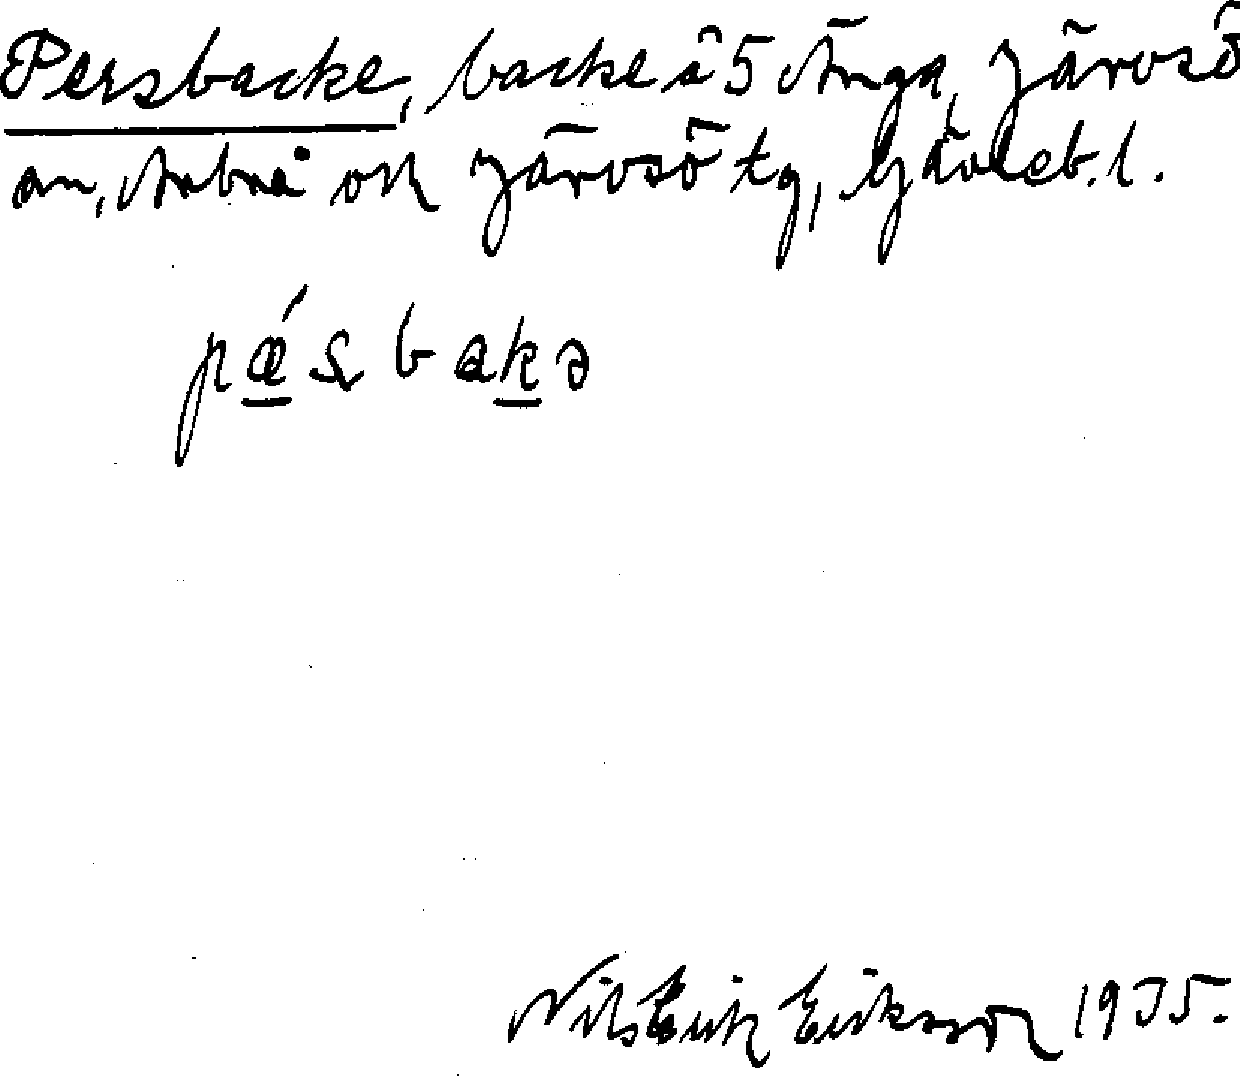 Persbacke, backe å 5 Änga, Järvsö
sn, Arbrå och Järvsö tg, Gävleb. l.
pǽsbakə
Nils Erik Eriksson 1935.